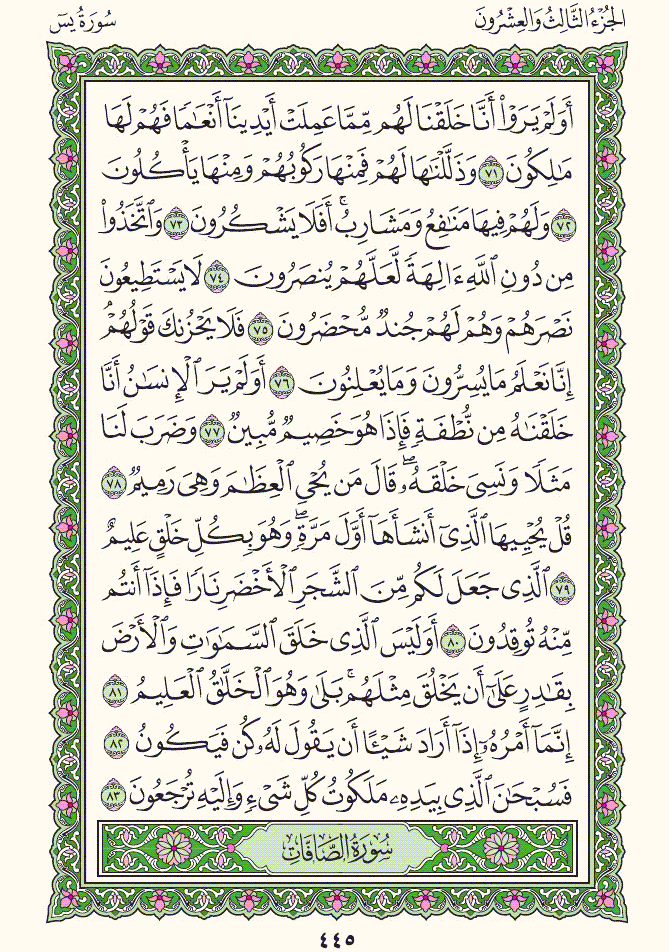 الجُزْءُ الثَّالِثُ وَالعِشْرُونَ
سُورَةُ يسٓ
أَوَلَمْ يَرَوْا۟ أَنَّا خَلَقْنَا لَهُم مِّمَّا عَمِلَتْ أَيْدِينَآ أَنْعَٰمًا فَهُمْ لَهَا
مَٰلِكُونَ ٧١ وَذَلَّلْنَٰهَا لَهُمْ فَمِنْهَا رَكُوبُهُمْ وَمِنْهَا يَأْكُلُونَ
٧٢ وَلَهُمْ فِيهَا مَنَٰفِعُ وَمَشَارِبُ ۚ أَفَلَا يَشْكُرُونَ ٧٣ وَٱتَّخَذُوا۟
مِن دُونِ ٱللَّهِ ءَالِهَةً لَّعَلَّهُمْ يُنصَرُونَ ٧٤ لَا يَسْتَطِيعُونَ
نَصْرَهُمْ وَهُمْ لَهُمْ جُندٌ مُّحْضَرُونَ ٧٥ فَلَا يَحْزُنكَ قَوْلُهُمْ ۘ
إِنَّا نَعْلَمُ مَا يُسِرُّونَ وَمَا يُعْلِنُونَ ٧٦ أَوَلَمْ يَرَ ٱلْإِنسَٰنُ أَنَّا
خَلَقْنَٰهُ مِن نُّطْفَةٍ فَإِذَا هُوَ خَصِيمٌ مُّبِينٌ ٧٧ وَضَرَبَ لَنَا
مَثَلًا وَنَسِىَ خَلْقَهُۥ ۖ قَالَ مَن يُحْىِ ٱلْعِظَٰمَ وَهِىَ رَمِيمٌ ٧٨
قُلْ يُحْيِيهَا ٱلَّذِىٓ أَنشَأَهَآ أَوَّلَ مَرَّةٍ ۖ وَهُوَ بِكُلِّ خَلْقٍ عَلِيمٌ
٧٩ ٱلَّذِى جَعَلَ لَكُم مِّنَ ٱلشَّجَرِ ٱلْأَخْضَرِ نَارًا فَإِذَآ أَنتُم
مِّنْهُ تُوقِدُونَ ٨٠ أَوَلَيْسَ ٱلَّذِى خَلَقَ ٱلسَّمَٰوَٰتِ وَٱلْأَرْضَ
بِقَٰدِرٍ عَلَىٰٓ أَن يَخْلُقَ مِثْلَهُم ۚ بَلَىٰ وَهُوَ ٱلْخَلَّٰقُ ٱلْعَلِيمُ ٨١
إِنَّمَآ أَمْرُهُۥٓ إِذَآ أَرَادَ شَيْـًٔا أَن يَقُولَ لَهُۥ كُن فَيَكُونُ ٨٢
فَسُبْحَٰنَ ٱلَّذِى بِيَدِهِۦ مَلَكُوتُ كُلِّ شَىْءٍ وَإِلَيْهِ تُرْجَعُونَ ٨٣
سُورَةُ الصَّافَّاتِ
٤٤٥